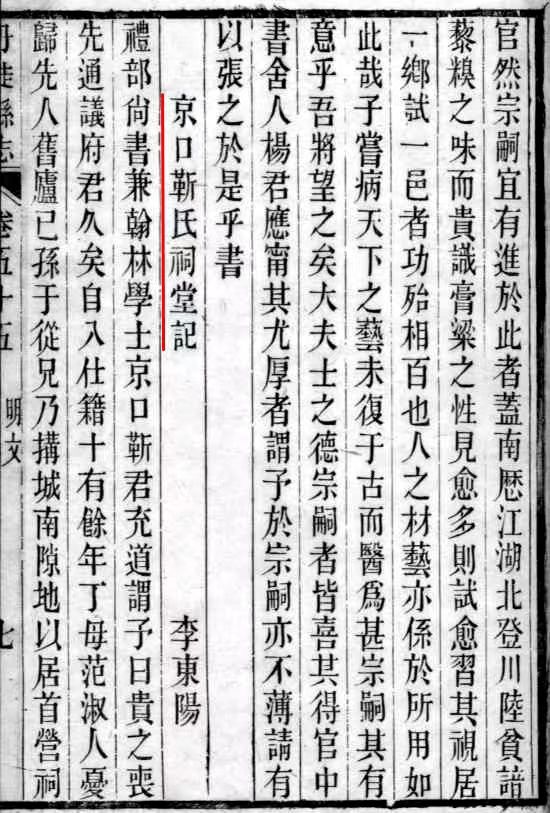 官然宗嗣宜有進於此者蓋南厯江湖北登川陸貧諳
藜糗之味而貴識膏粱之性見愈多則試愈習其視居
一鄉試一邑者功殆相百也人之材藝亦係於所用如
此哉子嘗病天下之藝未復于古而醫爲甚宗嗣其有
意乎吾將望之矣大夫士之德宗嗣者皆喜其得官中
書舍人楊君應甯其尤厚者謂予於宗嗣亦不薄請有
以張之於是乎書
京口靳氏祠堂記 李東陽
禮部尙書兼翰林學士京口靳君充道謂予曰貴之喪
先通議府君久矣自入仕籍十有餘年丁母范淑人憂
歸先人舊廬已孫于從兄乃搆城南隙地以居首營祠
丹徒縣志 卷五十五 明文 七